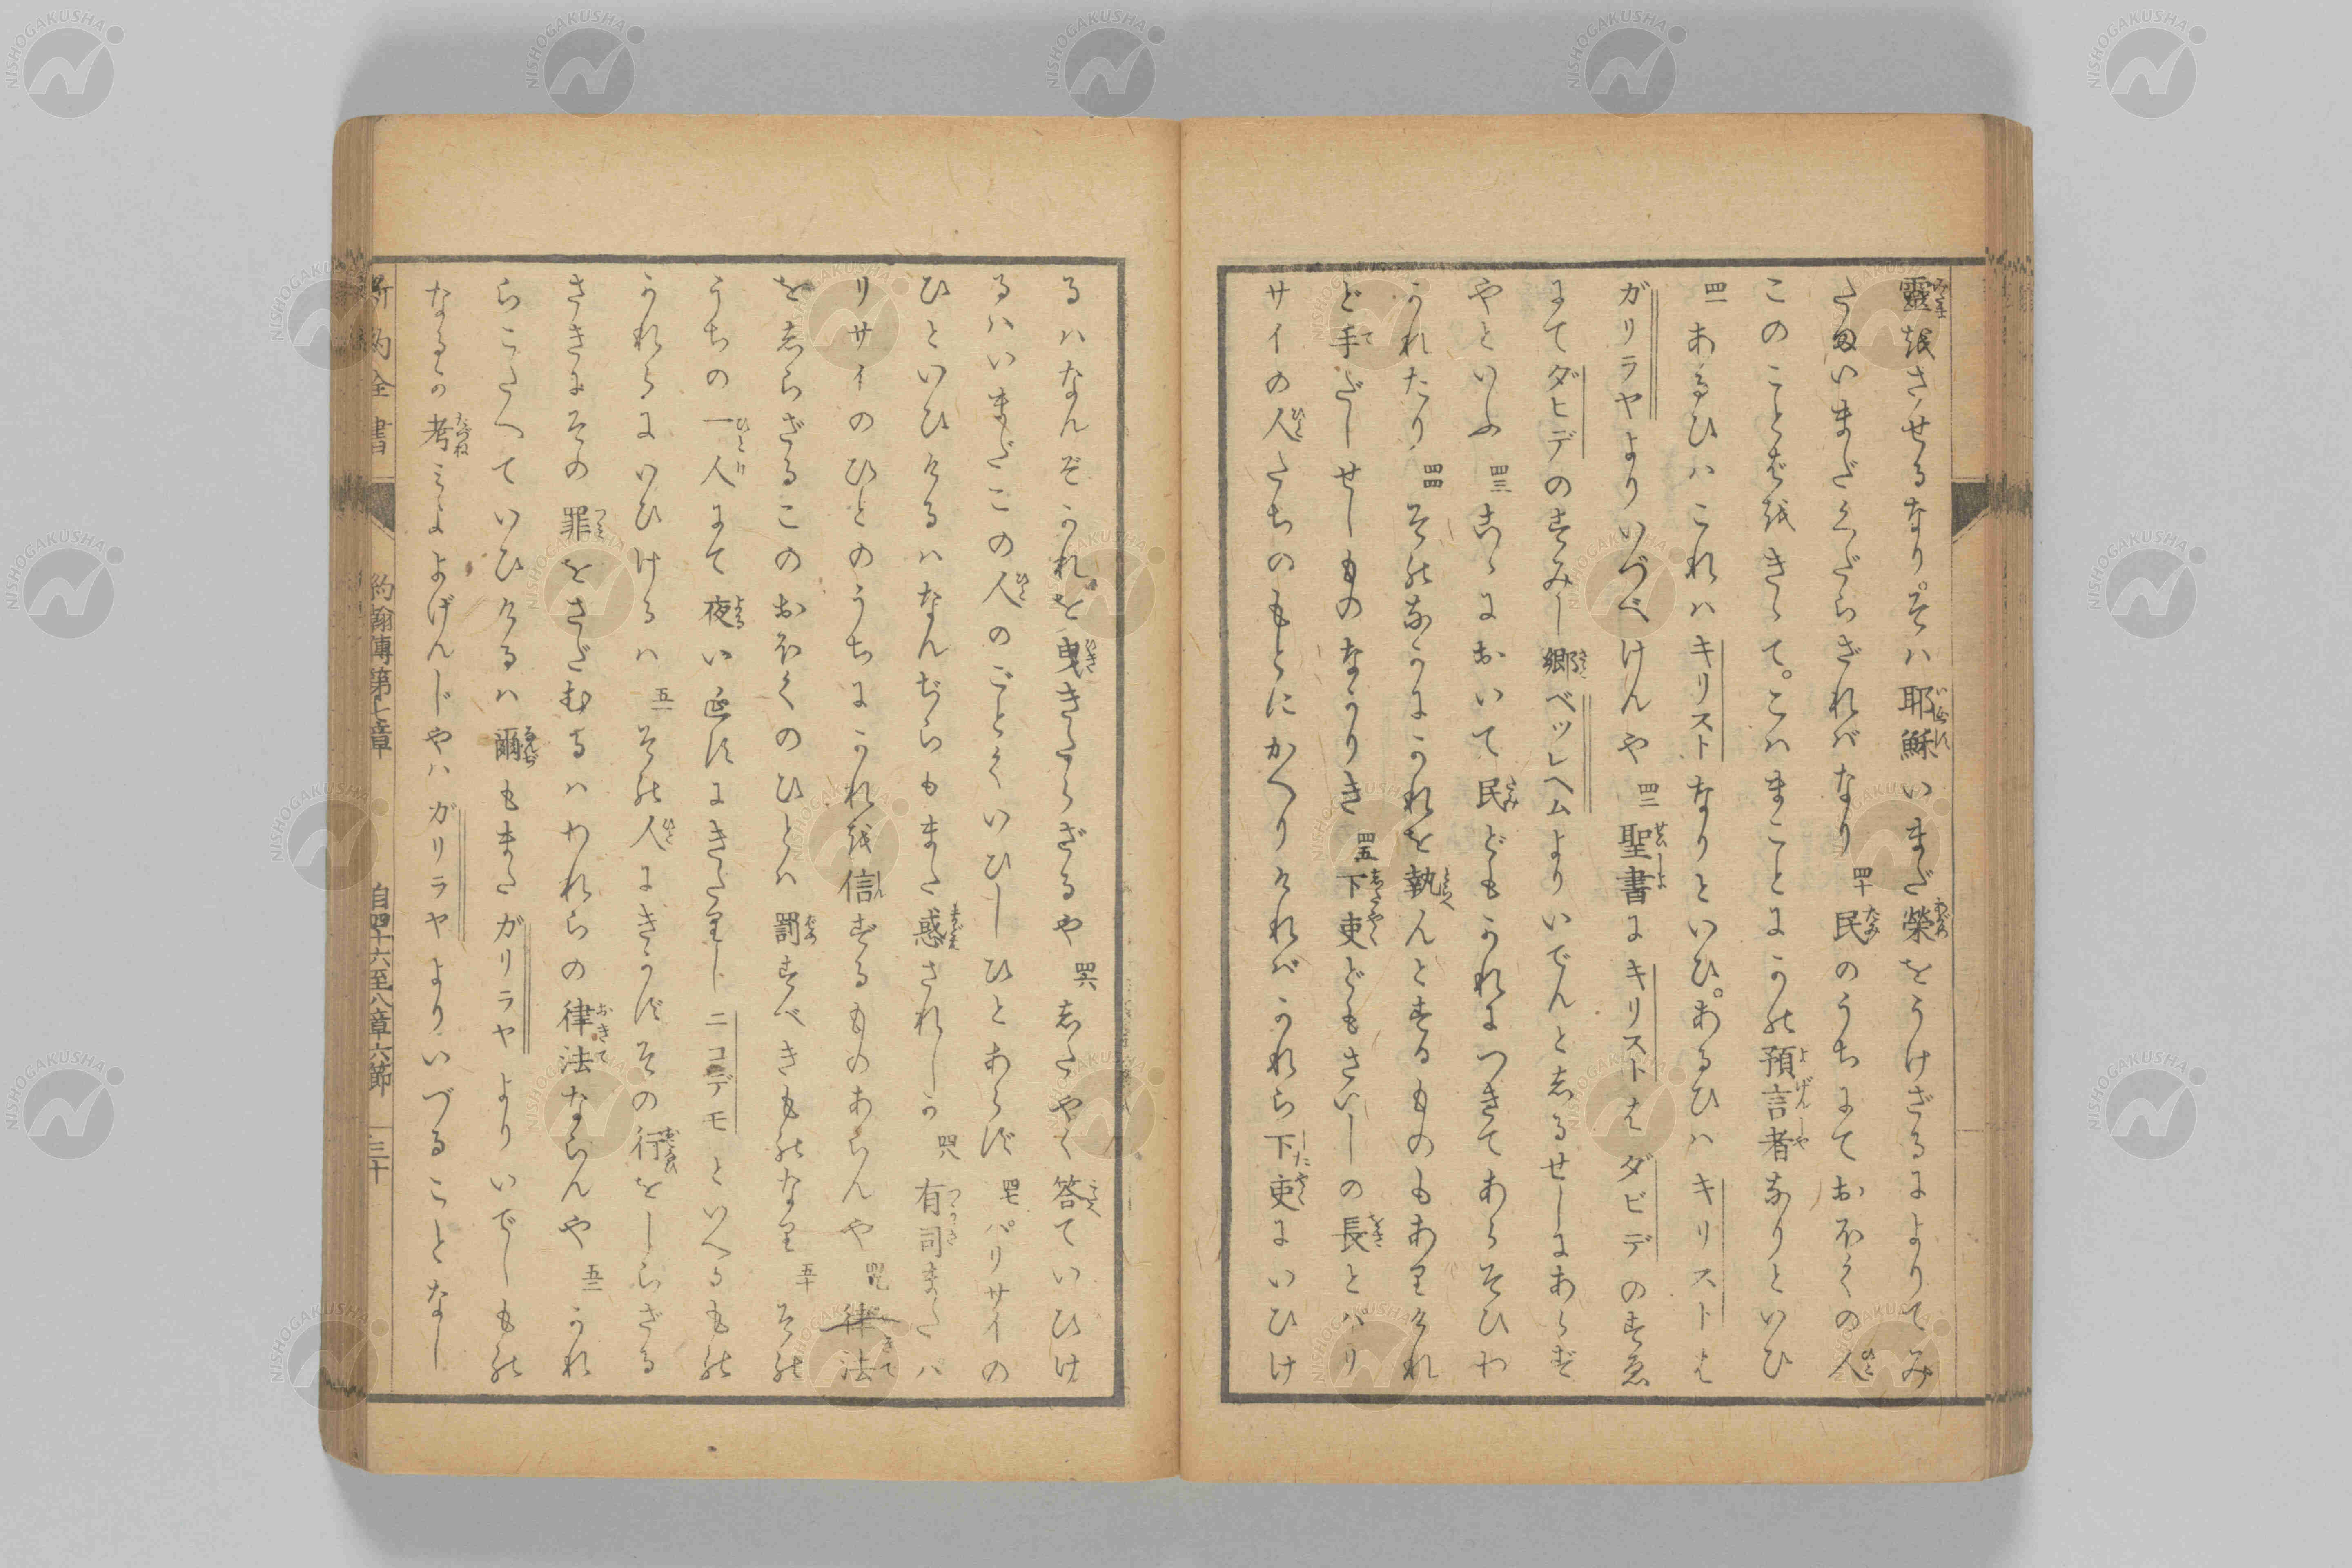 靈をさせるなり。そハ耶穌いまだ榮をうけざるによりてみ
たまいまだくだらざれバなり 四十 民のうちにておほくの人
このことばをきゝて。こハまことにかの預言者なりといひ
四一 あるひハこれハキリストなりといひ。あるひハキリストは
ガリラヤよりいづべけんや 四二 聖書にキリストはダビデのすゑ
にてダヒデのすみし郷ベツレヘムよりいでんとしるせしにあらずや
やといふ 四三 こゝにおいて民どもかれにつきてあらそひわ
かれたり 四四 そのなかにかれを執んとするものもありけれ
ど手だしせしものなかりき 四五 下吏どもさいしの長とパリ
サイの人たちのもとにかへりけれバかれら下吏にいひけ
るハなんぞかれを曳きたらざるや 四六 したやく答ていひけ
るハいまだこの人のごとくいひしひとあらず 四七 パリサイの
ひといひけるハなんぢらもまた惑されしか 四八 有司またハパ
リサイのひとのうちにかれを信ずるものあらんや 四九 律法
をしらざるこのおほくのひとハ罰すべきものなり 五十 その
うちの一人にて夜いゑすにきたりしニコデモといへるもの
かれらにいひけるハ 五一 その人にきかずその行をしらざる
さきにその罪をさだむるハわれらの律法ならんや 五二 かれ
らこたへていひけるハ爾もまたガリラヤよりいでしもの
なるか考みよよげんじやハガリラヤよりいづることなし
新約全書 約翰傳第七章 自四十六至八章六節 三十